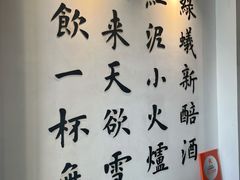 綠蟻新醅酒
紅泥小火爐
来天欲雪
飲一杯無